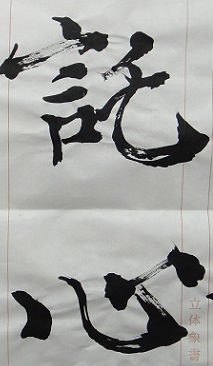 託
心
立体象書